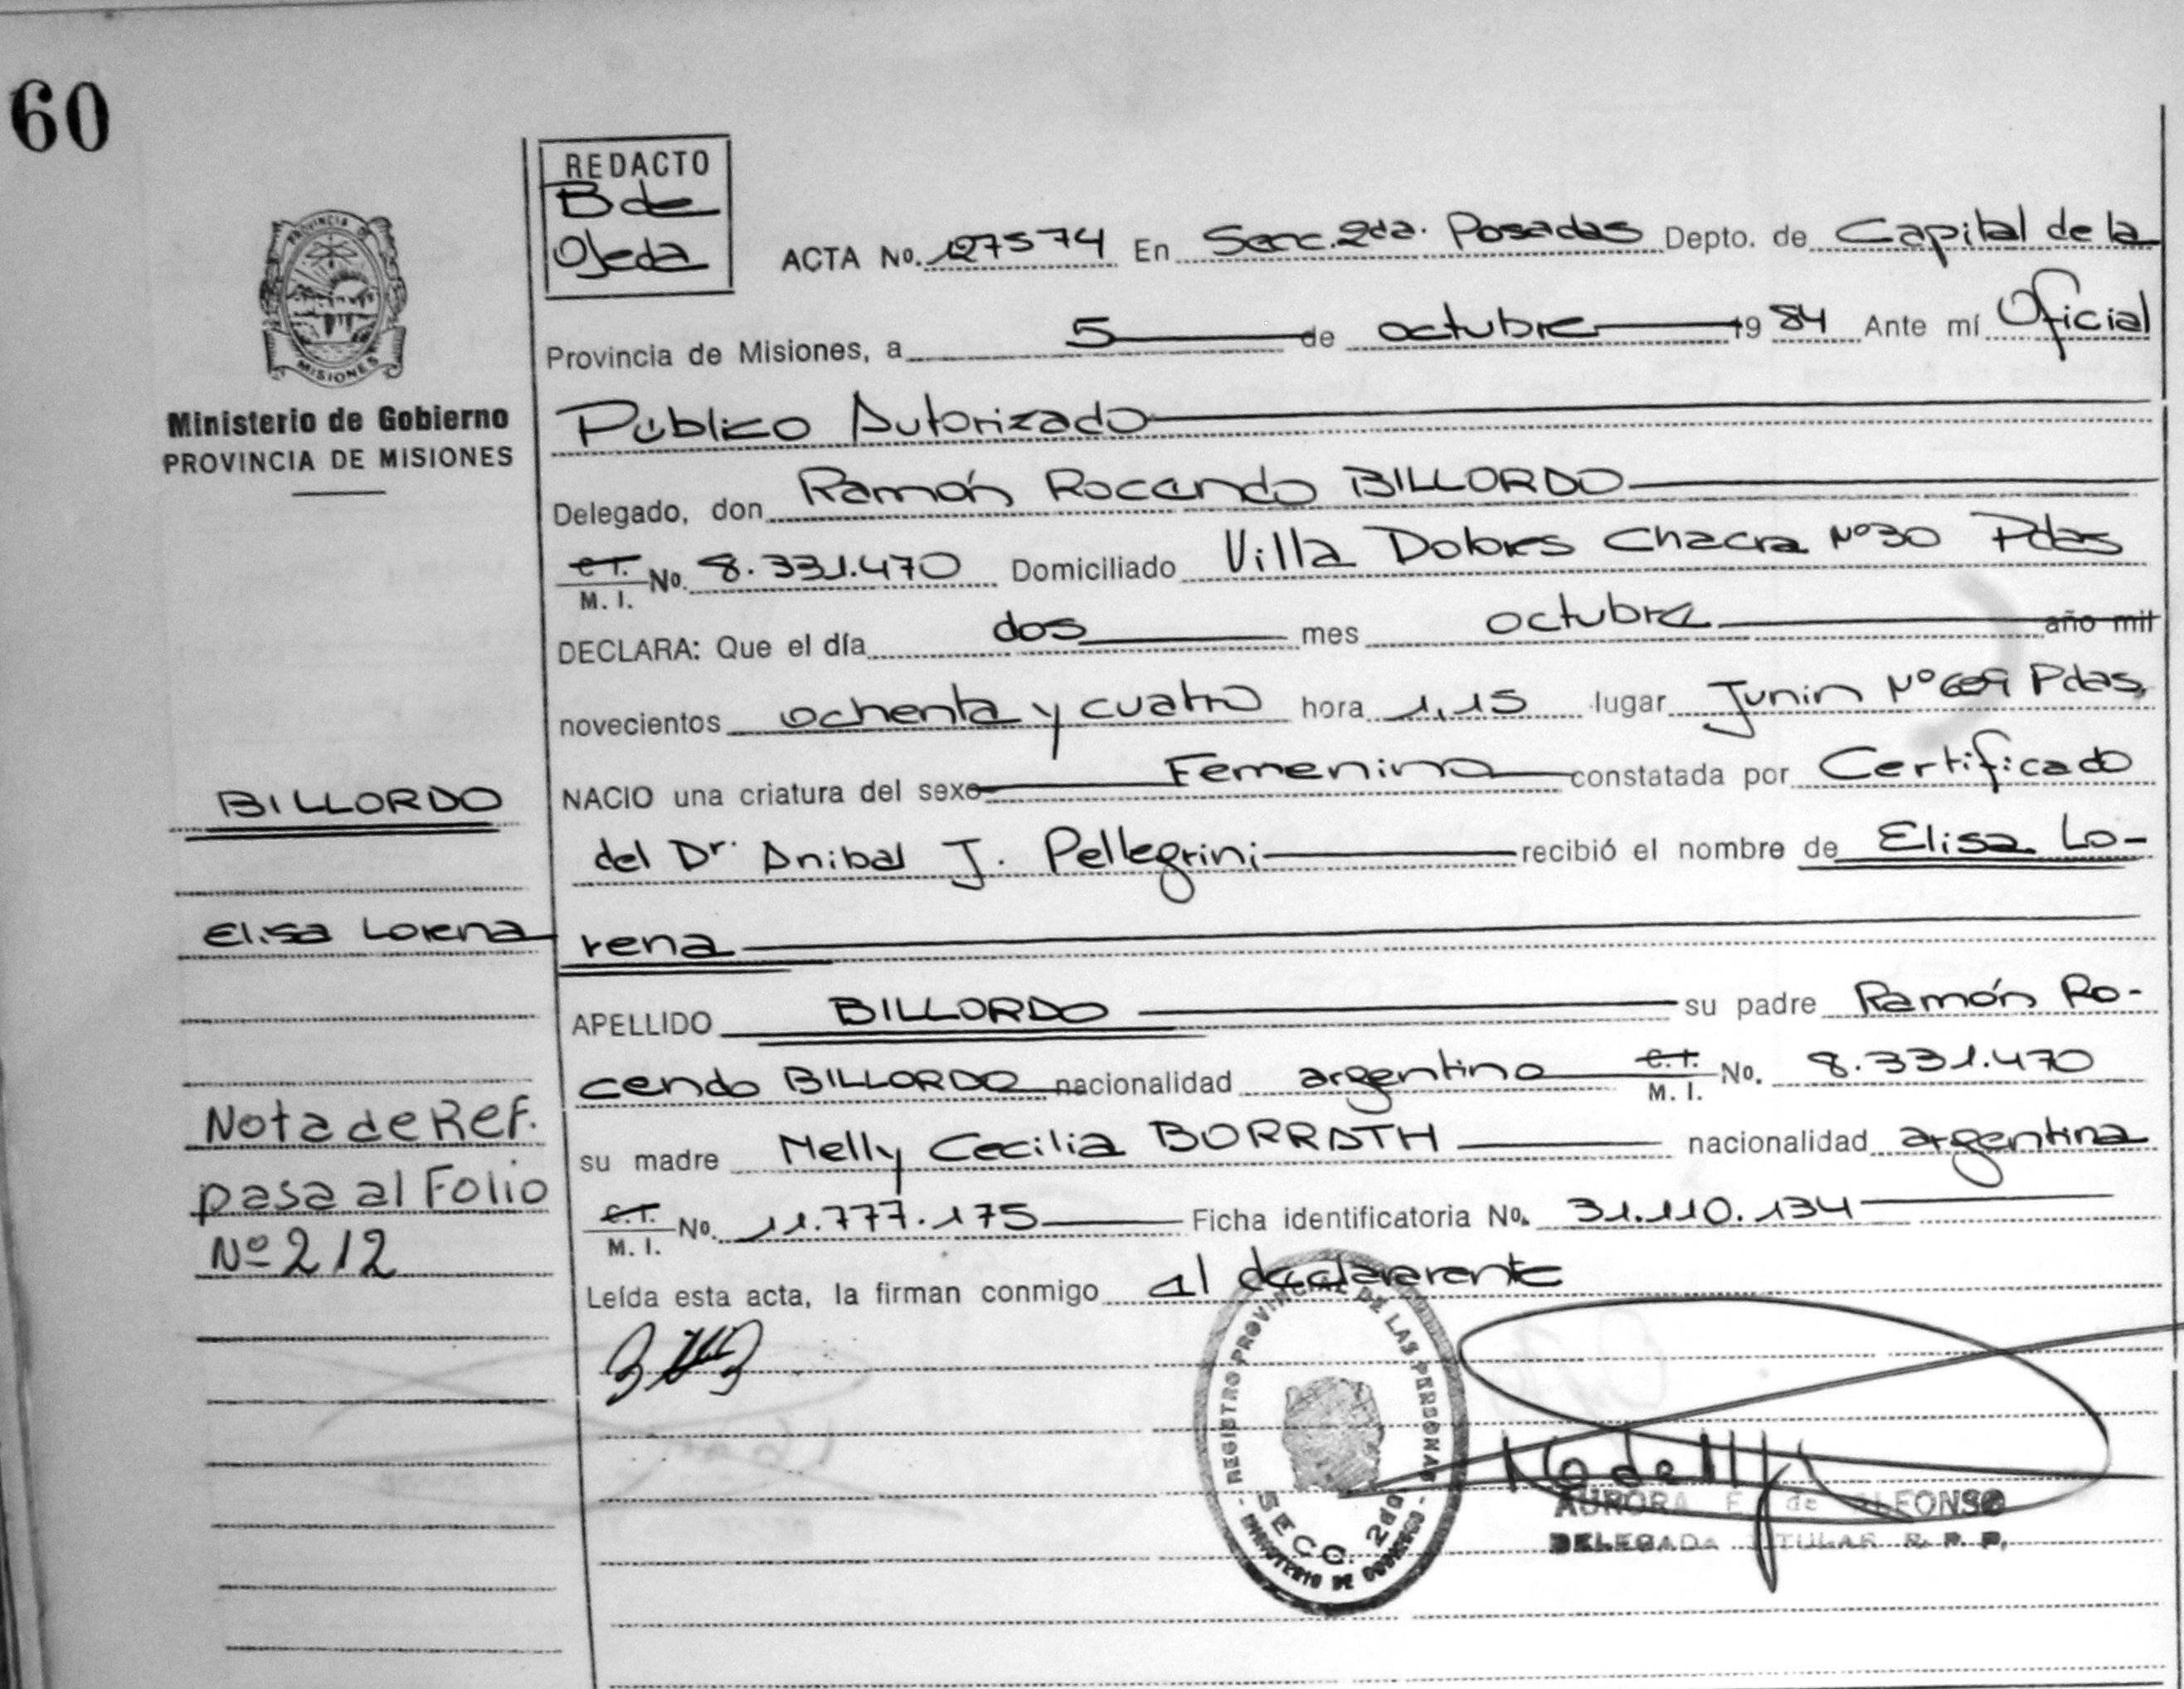 60
REDACTO
B de
Ojeda
PROVINCIA DE
MISIONES
Ministerio de Gobierno
PROVINCIA DE MISIONES
ACTA No. 27574 En Secc. 2da. Posadas Depto. de Capital de la
Provincia de Misiones, a 5 de octubre 19 84 Ante mí Oficial
Público Autorizado
Delegado, don Ramón Rocendo BILLORDO
C.I. M. I. No. 8.331.470 Domiciliado Villa Dolores Chacra Nº 30 Pdas
DECLARA: Que el día dos mes octubre año mil
novecientos ochenta y cuatro hora 1,15 lugar Junin Nº Pdas.
NACIO una criatura del sexo Femenino constatada por Certificado
del Dr. Anibal J. Pellegrini recibió el nombre de Elisa Lo-
rena
APELLIDO BILLORDO su padre Ramón Ro-
cendo BILLORDO nacionalidad argentino C.I. M. I. No. 8.331.470
su madre Nelly Cecilia BORRATH nacionalidad argentina
C.I. M. I. No. 11.777.175 Ficha identificatoria No. 31.110.134
Leída esta acta, la firman conmigo el declararente
BILLORDO
Elisa Lorena
Nota de Ref.
pasa al Folio
Nº 212
REGISTRO PROVINCIAL DE LAS PERSONAS
SECC. 2da
MINISTERIO DE GOBIERNO
AURORA F. de ALFONSO
DELEGADA TITULAR R. P. P.